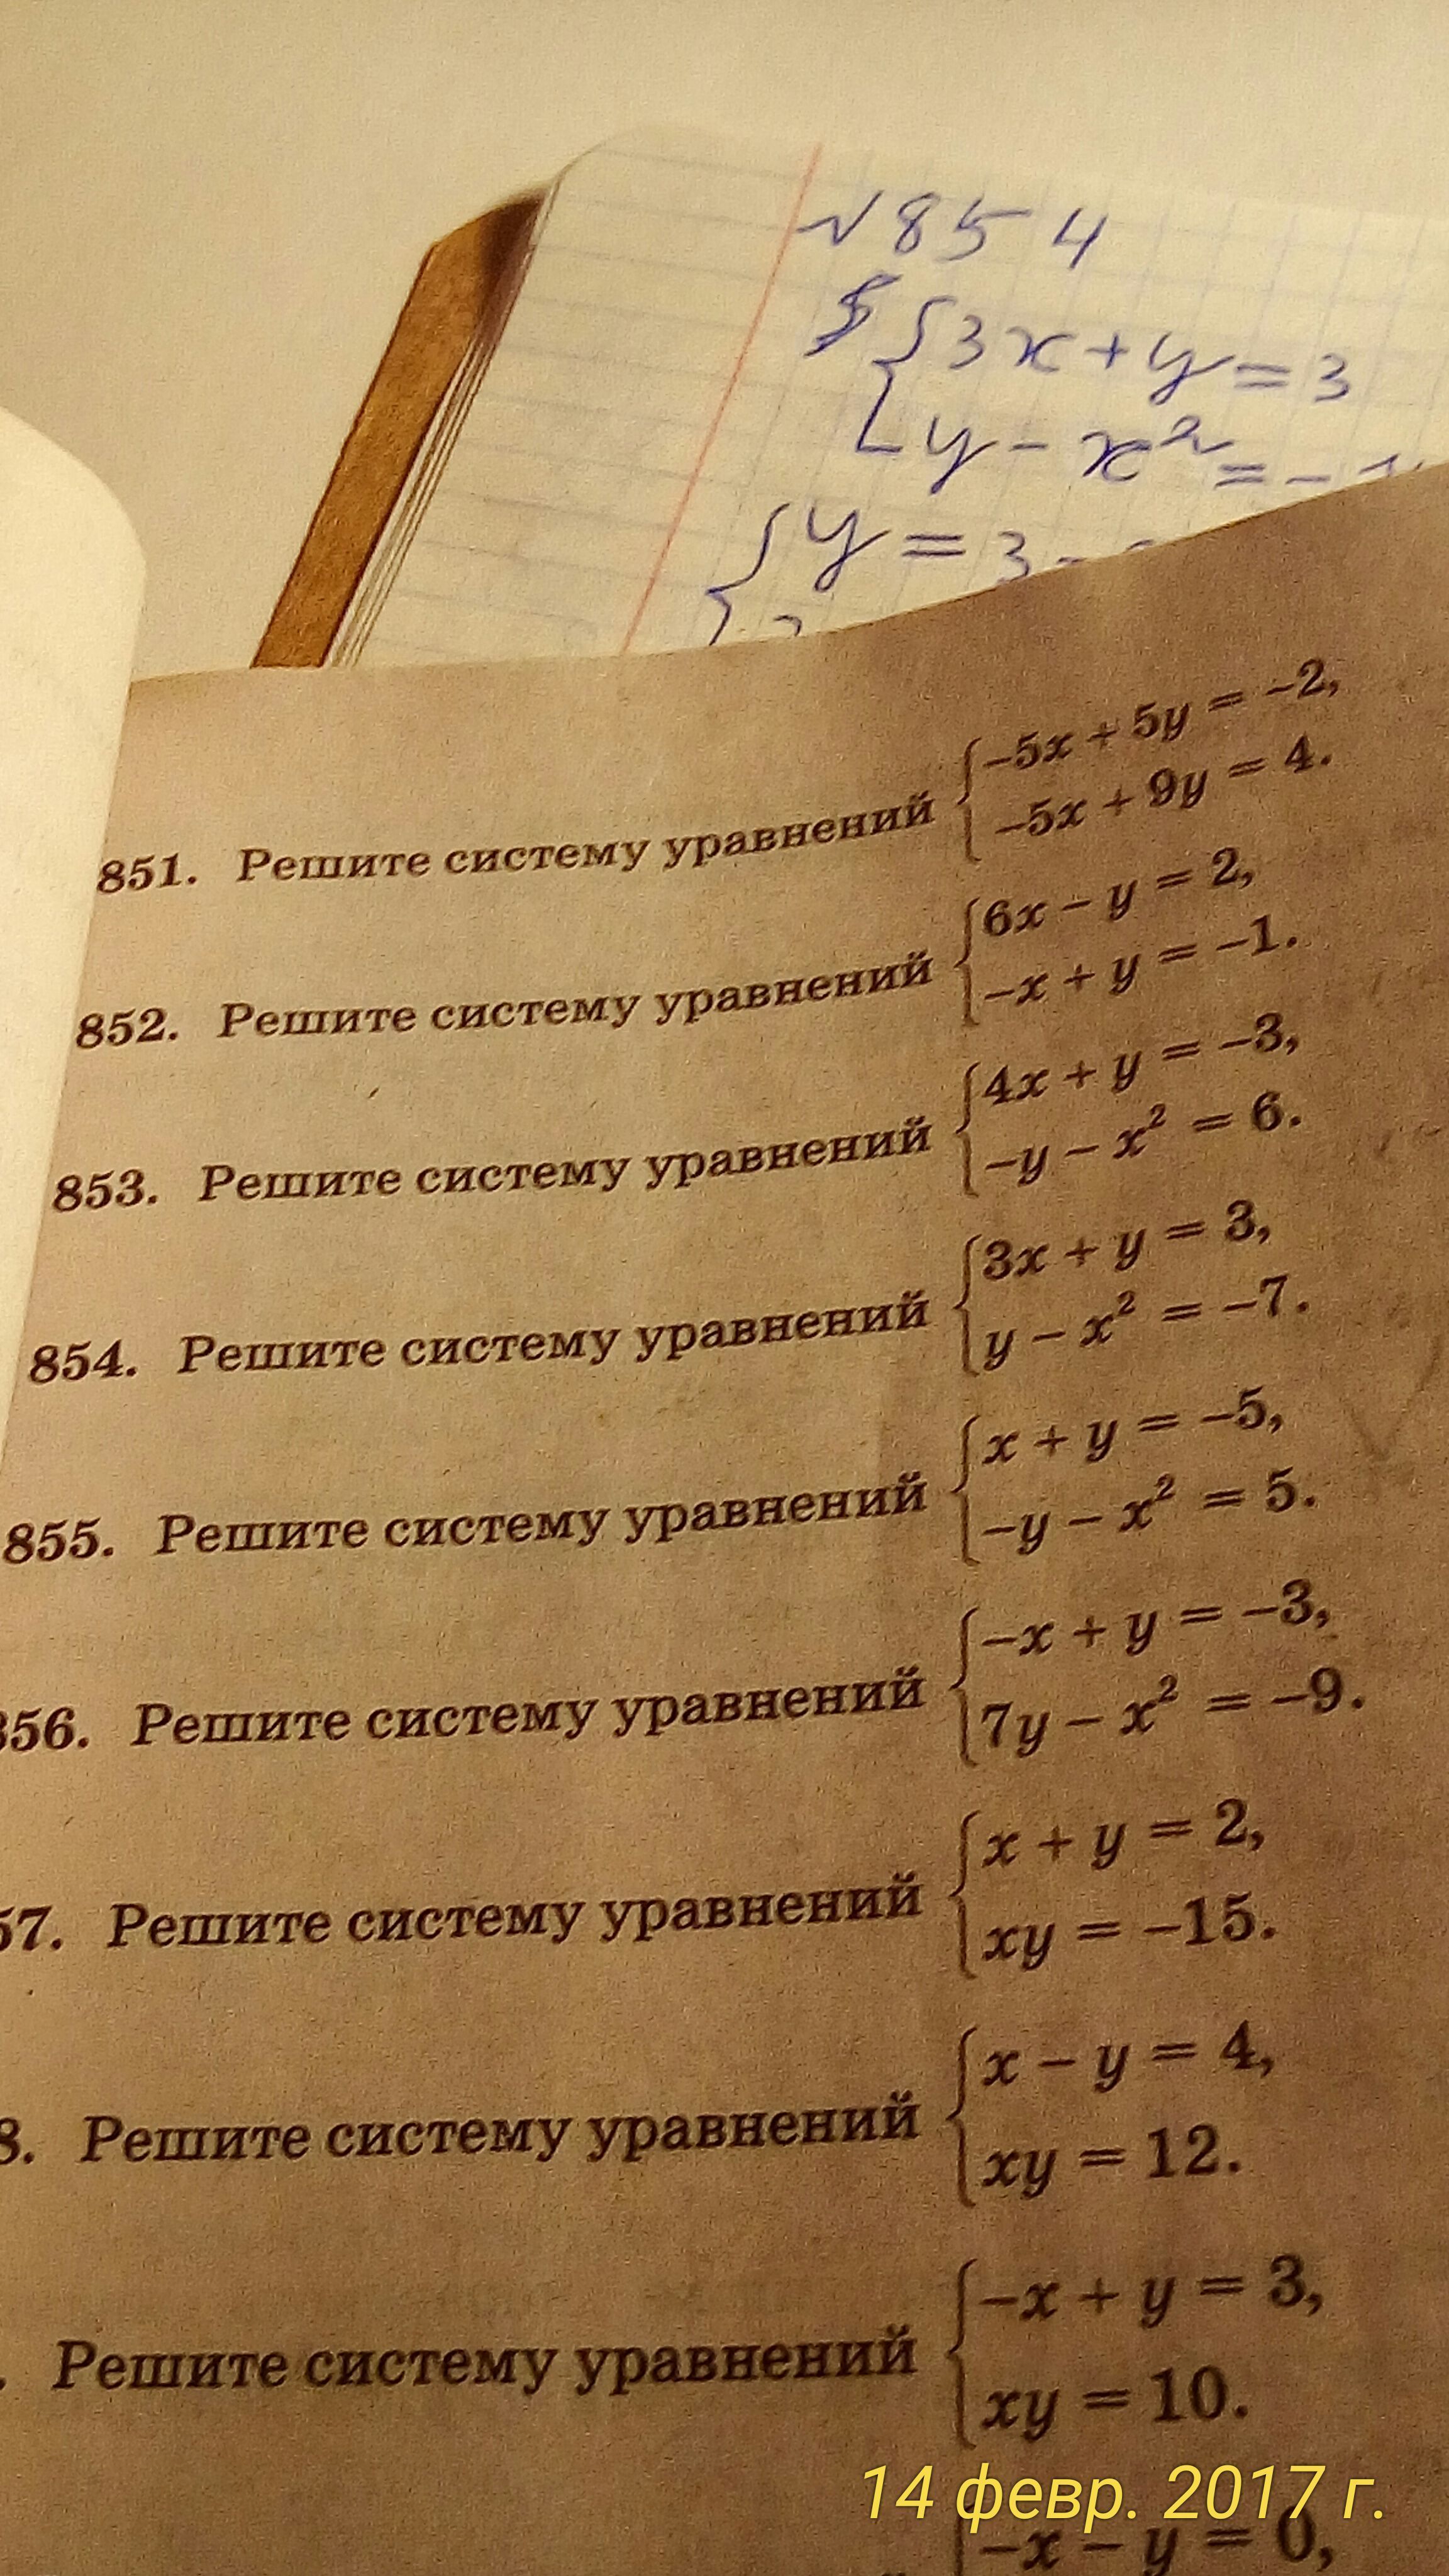 № 854
{3x + y = 3
{y - x² = -
{y = 3 -
{-5x + 5y = -2,
851. Решите систему уравнений
-5x + 9y = 4.
{6x - y = 2,
852. Решите систему уравнений
-x + y = -1.
{4x + y = -3,
853. Решите систему уравнений
-y - x² = 6.
{3x + y = 3,
854. Решите систему уравнений
y - x² = -7.
{x + y = -5,
855. Решите систему уравнений
-y - x² = 5.
{-x + y = -3,
856. Решите систему уравнений
7y - x² = -9.
{x + y = 2,
57. Решите систему уравнений
xy = -15.
{x - y = 4,
8. Решите систему уравнений
xy = 12.
{-x + y = 3,
. Решите систему уравнений
xy = 10.
14 февр. 2017 г.
{-x - y = 0,